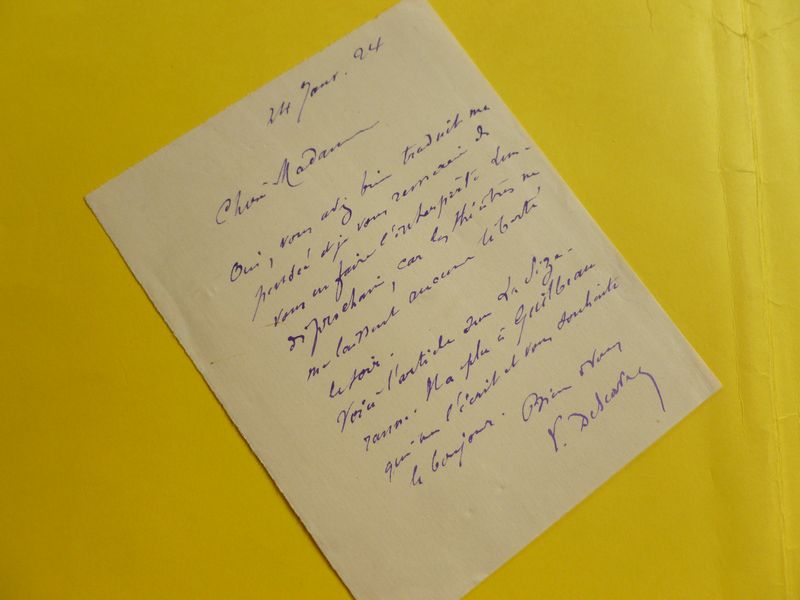 24 Janv. 24
Chère Madame
Oui, vous avez bien traduit ma
pensée et je vous remercie de
vous en faire l'interprète lun-
di prochain, car les théâtres ne
me laissent aucune liberté
le soir.
Voici l'article sur La Size-
ranne. Il a plu à Guilbeau
qui me l'écrit et vous souhaite
le bonjour. Bien à vous